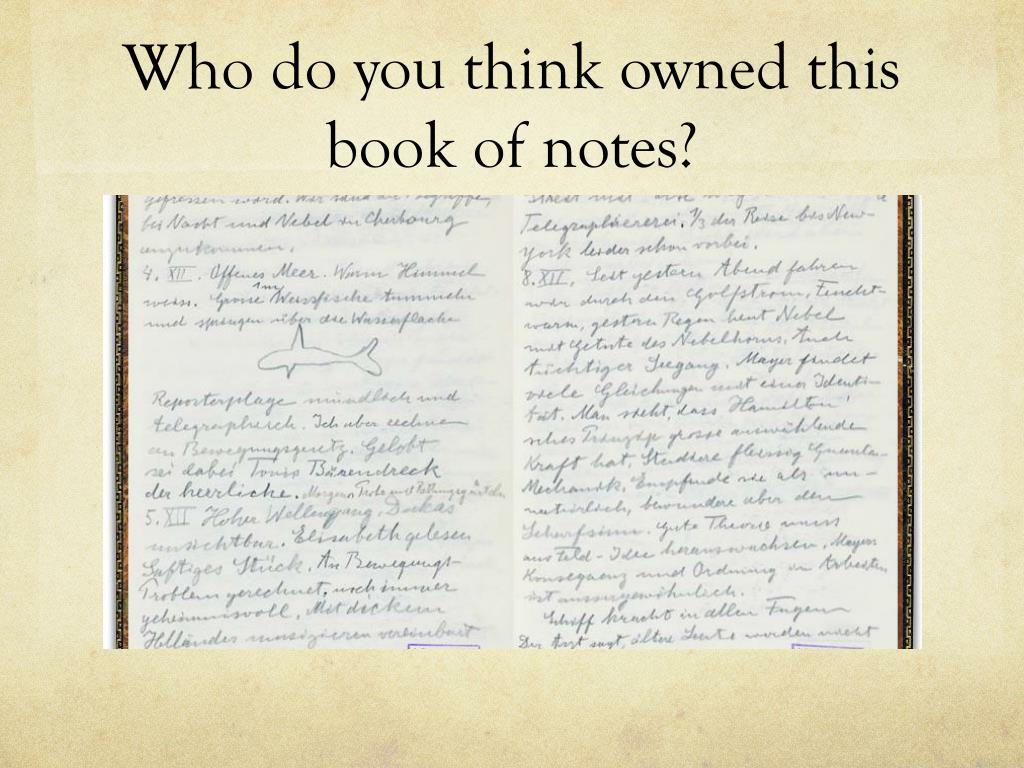 Who do you think owned this
book of notes?
bei Nacht und Nebel in Cherbourg
anzukommen.
4. XII. Offenes Meer. Warm Himmel
weiss. Grosse Weissfische tummeln
und springen über die Wasserfläche
Reporterplage mündlich und
telegraphisch. Ich aber rechne
an Bewegungsgesetz. Gelobt
sei dabei Tonis Bärendreck
der herrliche. Morgen Probe mit
5. XII Hoher Wellengang. Dukas
unsichtbar. Elisabeth gelesen
Saftiges Stück. An Bewegungs-
Problem gerechnet, noch immer
geheimnisvoll. Mit dickem
Holländer musizieren vereinbart
Telegraphiererei. 1/3 der Reise bis New-
York leider schon vorbei.
8. XII. Seit gestern Abend fahren
wir durch den Golfstrom, Feucht-
warm, gestern Regen heut Nebel
mit Getute des Nebelhorns. Auch
tüchtiger Seegang. Mayer findet
viele Gleichungen mit einer Identi-
tät. Man sieht, dass Hamilton'
sches Prinzip grosse auswählende
Kraft hat. Studiere fleissig Quanten-
Mechanik. Empfinde sie als un-
natürlich, bewundere aber den
Scharfsinn. Gute Theorie muss
aus Feld-Idee herauswachsen. Mayers
Konsequenz und Ordnung im Arbeiten
ist aussergewöhnlich.
Schiff kracht in allen Fugen
Der Arzt sagt, ältere Leute werden nicht